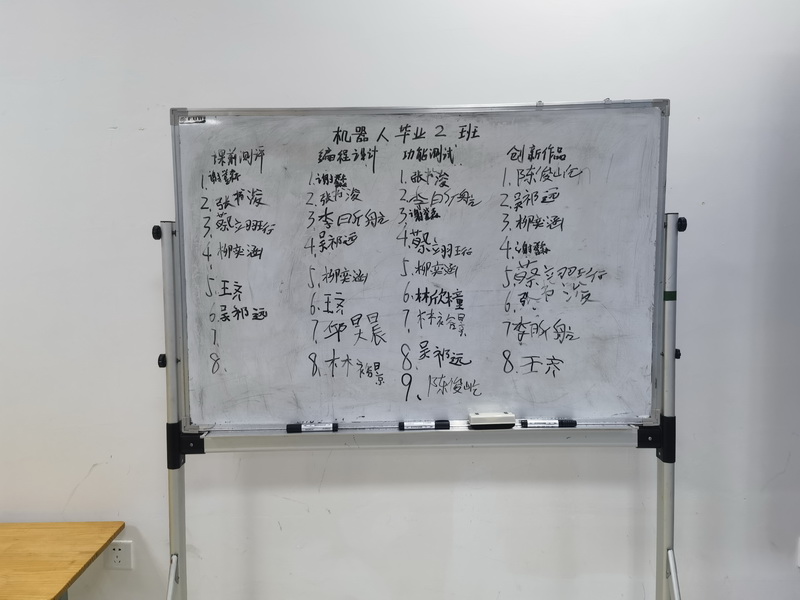 机器人毕业2班
课前测评
1.谢
2.张书浚
3.蔡立翃珩
4.柳奕涵
5.王亮
6.吴祁远
7.
8.
编程设计
1.谢
2.张书浚
3.李昕船
4.吴祁远
5.柳奕涵
6.王亮
7.邱昊晨
8.林裕景
功能测试
1.张书浚
2.李昕船
3.谢
4.蔡立翃珩
5.柳奕涵
6.林欣橦
7.林裕景
8.吴祁远
9.陈俊屹
创新作品
1.陈俊屹
2.吴祁远
3.柳奕涵
4.谢
5.蔡立翃珩
6.张书浚
7.李昕船
8.王亮